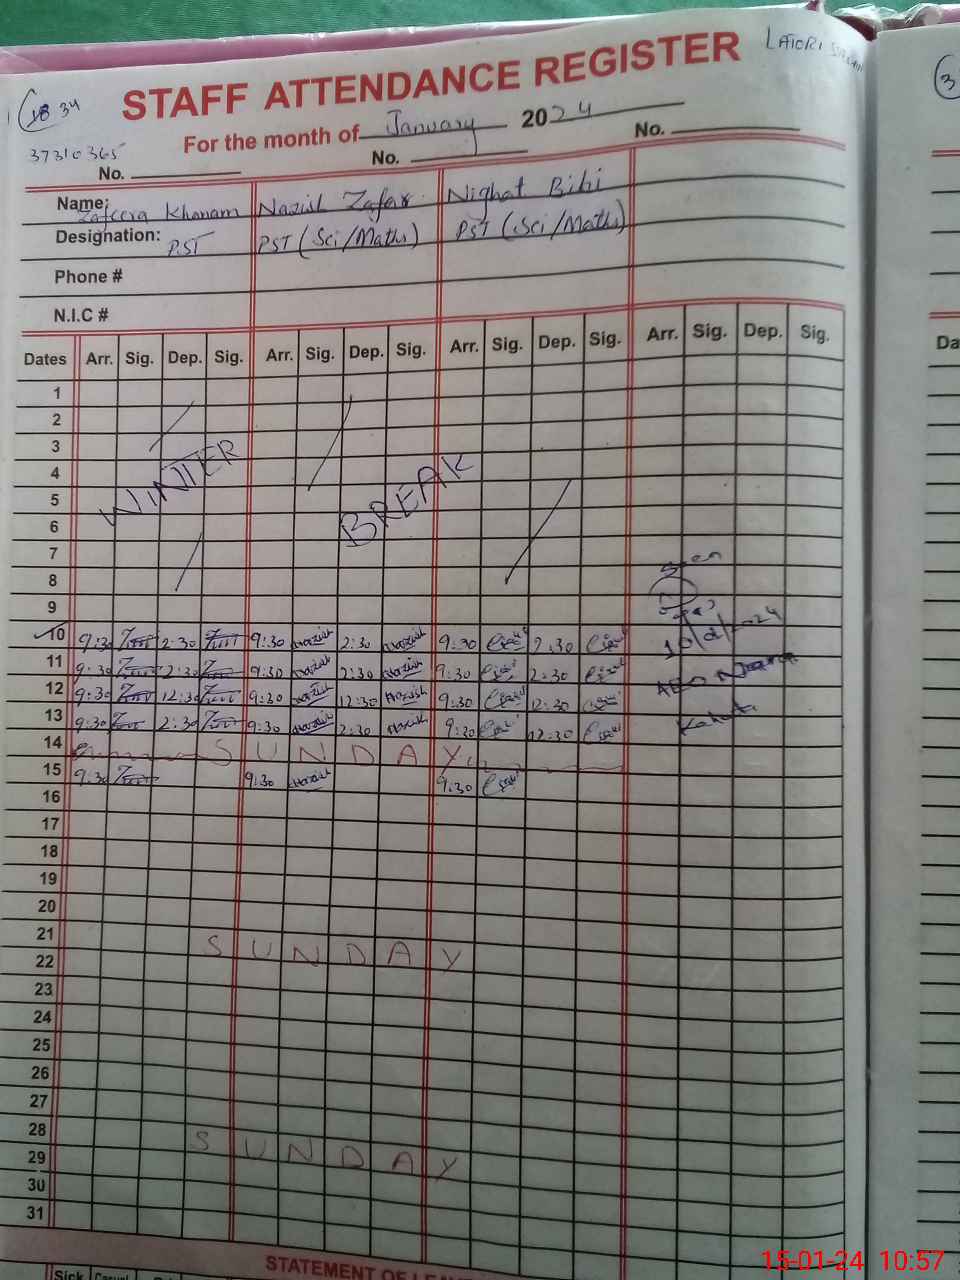 LATORI
STAFF ATTENDANCE REGISTER
18 34
For the month of January 2024
37310365
No. No. No.
Name: Zafeera Khanam Nazish Zafar Nighat Bibi
Designation: PST PST (Sci/Maths) PST (Sci/Maths)
Phone #
N.I.C #
Dates Arr. Sig. Dep. Sig. Arr. Sig. Dep. Sig. Arr. Sig. Dep. Sig. Arr. Sig. Dep. Sig.
1
2
3
4
WINTER BREAK
5
6
7
8
9
10 9:30 2:30 9:30 Nazish 2:30 Nazish 9:30 2:30
11 9:30 2:30 9:30 Nazish 2:30 Nazish 9:30 2:30
12 9:30 12:30 9:30 Nazish 12:30 Nazish 9:30 12:30
13 9:30 2:30 9:30 Nazish 2:30 Nazish 9:30 12:30
AEO
Kahuta
14 SUNDAY
15 9:30 9:30 Nazish 9:30
16
17
18
19
20
21 SUNDAY
22
23
24
25
26
27
28 SUNDAY
29
30
31
STATEMENT OF
Sick Casual
3
Da
15-01-24 10:57